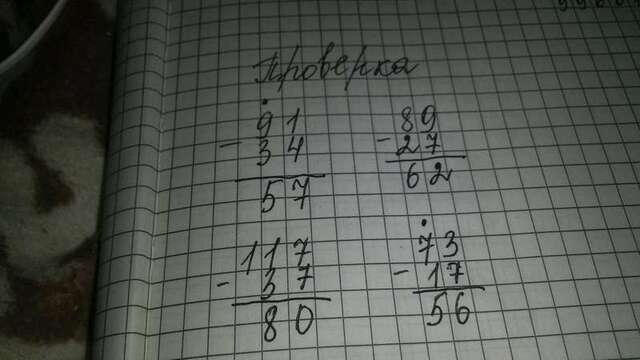 Проверка
91
- 34
57
89
- 27
62
117
- 37
80
73
- 17
56